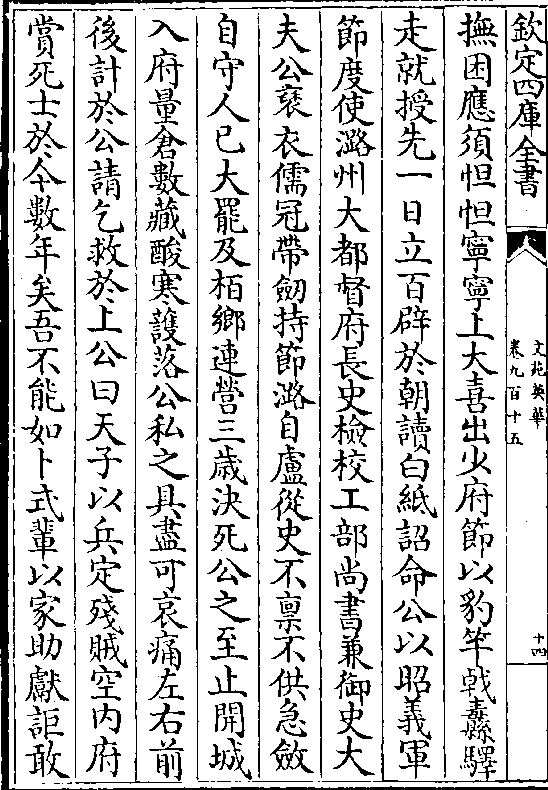 欽定四庫全書
文苑英華
卷九百十五
十四
撫困應須怛怛寧寧上大喜出少府節以豹竿戟纛驛
走就授先一日立百辟於朝讀白紙詔命公以昭義軍
節度使潞州大都督府長史檢校工部尚書兼御史大
夫公褒衣儒冠帶劒持節潞自盧從史不禀不供急斂
自守人已大罷及栢鄉連營三歲決死公之至止開城
入府量倉數藏酸寒䕶落公私之具盡可哀痛左右前
後計於公請乞救於上公曰天子以兵定殘賊空内府
賞死士於今數年矣吾不能如卜式輩以家助獻詎敢